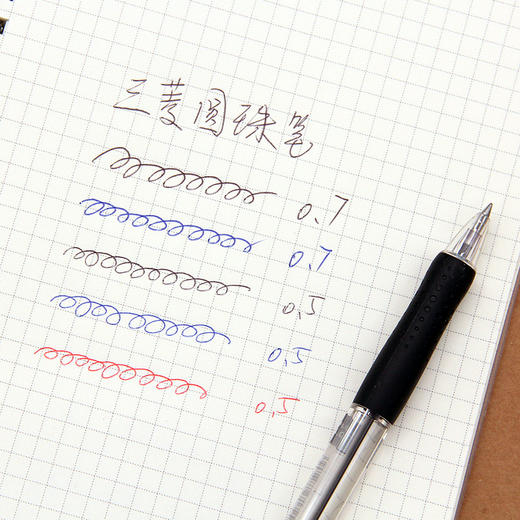 三菱圆珠笔
0.7
0.7
0.5
0.5
0.5